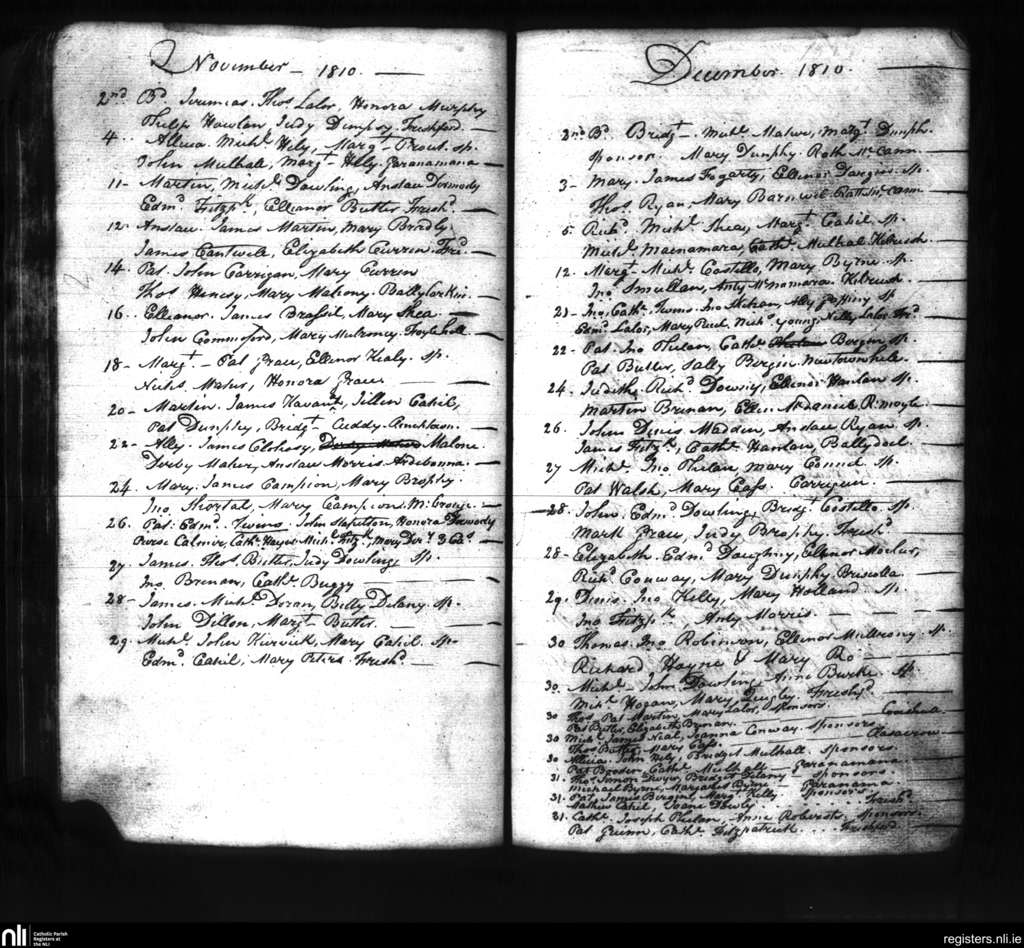 November - 1810.
2nd Bd. Jeremias. Thos Lalor, Honora Murphy
Philip Howlan Judy Dempsy Freshford.
4.. Allicia Michl Hely, Margt Prout. sp.
John Mulhall, Margt Hely. Garanamana
11- Martin, Michl Dowling, Anslau Dormody
Edmd. Fitzpk, Elleanor Butler Freshd.
12. Anslau. James Martin, Mary
James Cantwele, Elizabeth Currin Fre.
14. Pat. John Carrigan, Mary Currin
Thos Henesy, Mary Mahony. Ballylarkin.
16.. Elleanor. James Brassil, Mary Shea.
John Commoford, Mary Mulroney
18- Margt. - Pat Grace, Ellenor Healy. sp.
Nichs Maher, Honora Grace
20- Martin. James Kavant, Jillen Cahil,
Pat Dunphy, Bridgt Cuddy.
22- Ally. James Clohosy, Malone
Derby Maher, Anslau Morris
24. Mary. James Campion, Mary Brophy.
Jno. Shortal, Mary Campion
26. Pat: Edmd. Twins. John Stapelton, Honora Dormody
Peirse Calmir, Cathe Hayes Michl Fitzpk Mary
27 James. Thos. Butler, Judy Dowling, sp.
Jno. Brenan, Cathe. Buggy
28- James. Michl. Doran, Betty Delany. sp.
John Dillon, Margt Butler.
29. Michl. John Kerwick, Mary Cahil. sp.
Edmd. Cahil, Mary Peters Freshd.
December. 1810.
2nd Bd. Bridgt. Michl. Maher, Margt. Dunph.
sponsor. Mary Dunphy. Rath McCann.
3- Mary. James Fogarty, Ellenor Dargan sp.
Thos. Ryan, Mary Barnwil. Rath McCann
5. Richd. Michl. Shea, Margt Cahil. sp.
Michl. Macnamara, Cathe. Mulhal Kilrush.
12. Margt. Michl. Costello, Mary Byrne. sp.
Jno. Smullan, Anty McNamara. Kilrush
21- Jno. Cath. Twins. Jno. Skehan, Ally sp
Edmd. Lalor, Mary Nichs Young, Nelly Lalor Frd
22- Pat. Jno Phelan, Cathe Bergin sp.
Pat Butler, Sally Bergin. Newtownhill.
24. Judith. Richd. Downy, Ellenor Hanlan sp.
Martin Brenan, Ellen McDaniel R.moyle.
26. John Denis Madden, Anslau Ryan. sp.
James Fitzpk, Cathe Hanlan, Ballydoel.
27 Michl. Jno Phelan, Mary Connel sp.
Pat Walsh, Mary Cass. Carrigeen
28. John. Edmd Dowling, Bridgt Costello. sp
Mark Grace, Judy Brophy. Freshd
28- Elizabeth. Edmd Doughny, Ellenor Meehur,
Richd Conway, Mary Dunphy. Briscolla.
29. Denis. Jno Kelly, Mary Holland. sp
Jno Fitzpk, Anty Morris
30 Thomas. Jno Robinson, Ellenor Mullrony. sp.
Richard Hayne & Mary Ro
30. Michl. John Dowling Anne Burke. sp.
Michl Hogan, Mary Quigley Freshfd.
30 Thos. Pat Martin, Mary Lalor, sponsors.
Pat Butler, Elizabeth Brenan. Coneshena
30 Michl. James Neal, Joanna Conway. sponsors
Thos Butler, Mary Cass. Clasacrow
30 Allicia. John Hely, Bridget Mulhall. sponsors.
Pat Cathe Mulhall - Garanamana
31. Thos. Simon Dwyer, Bridget Delany - sponsors.
Michael Byrne, Margaret Byrne
31. Pat James Bergin, Margt Kelly sponsors
Mathew Cahil, Joane Dowly. Freshd
31. Cathe. Joseph Phelan, Anne Roberts. sponsors.
Pat Guinn, Cathe Fitzpatrick .... Freshford
nli
Catholic Parish
Registers at
the NLI
registers.nli.ie